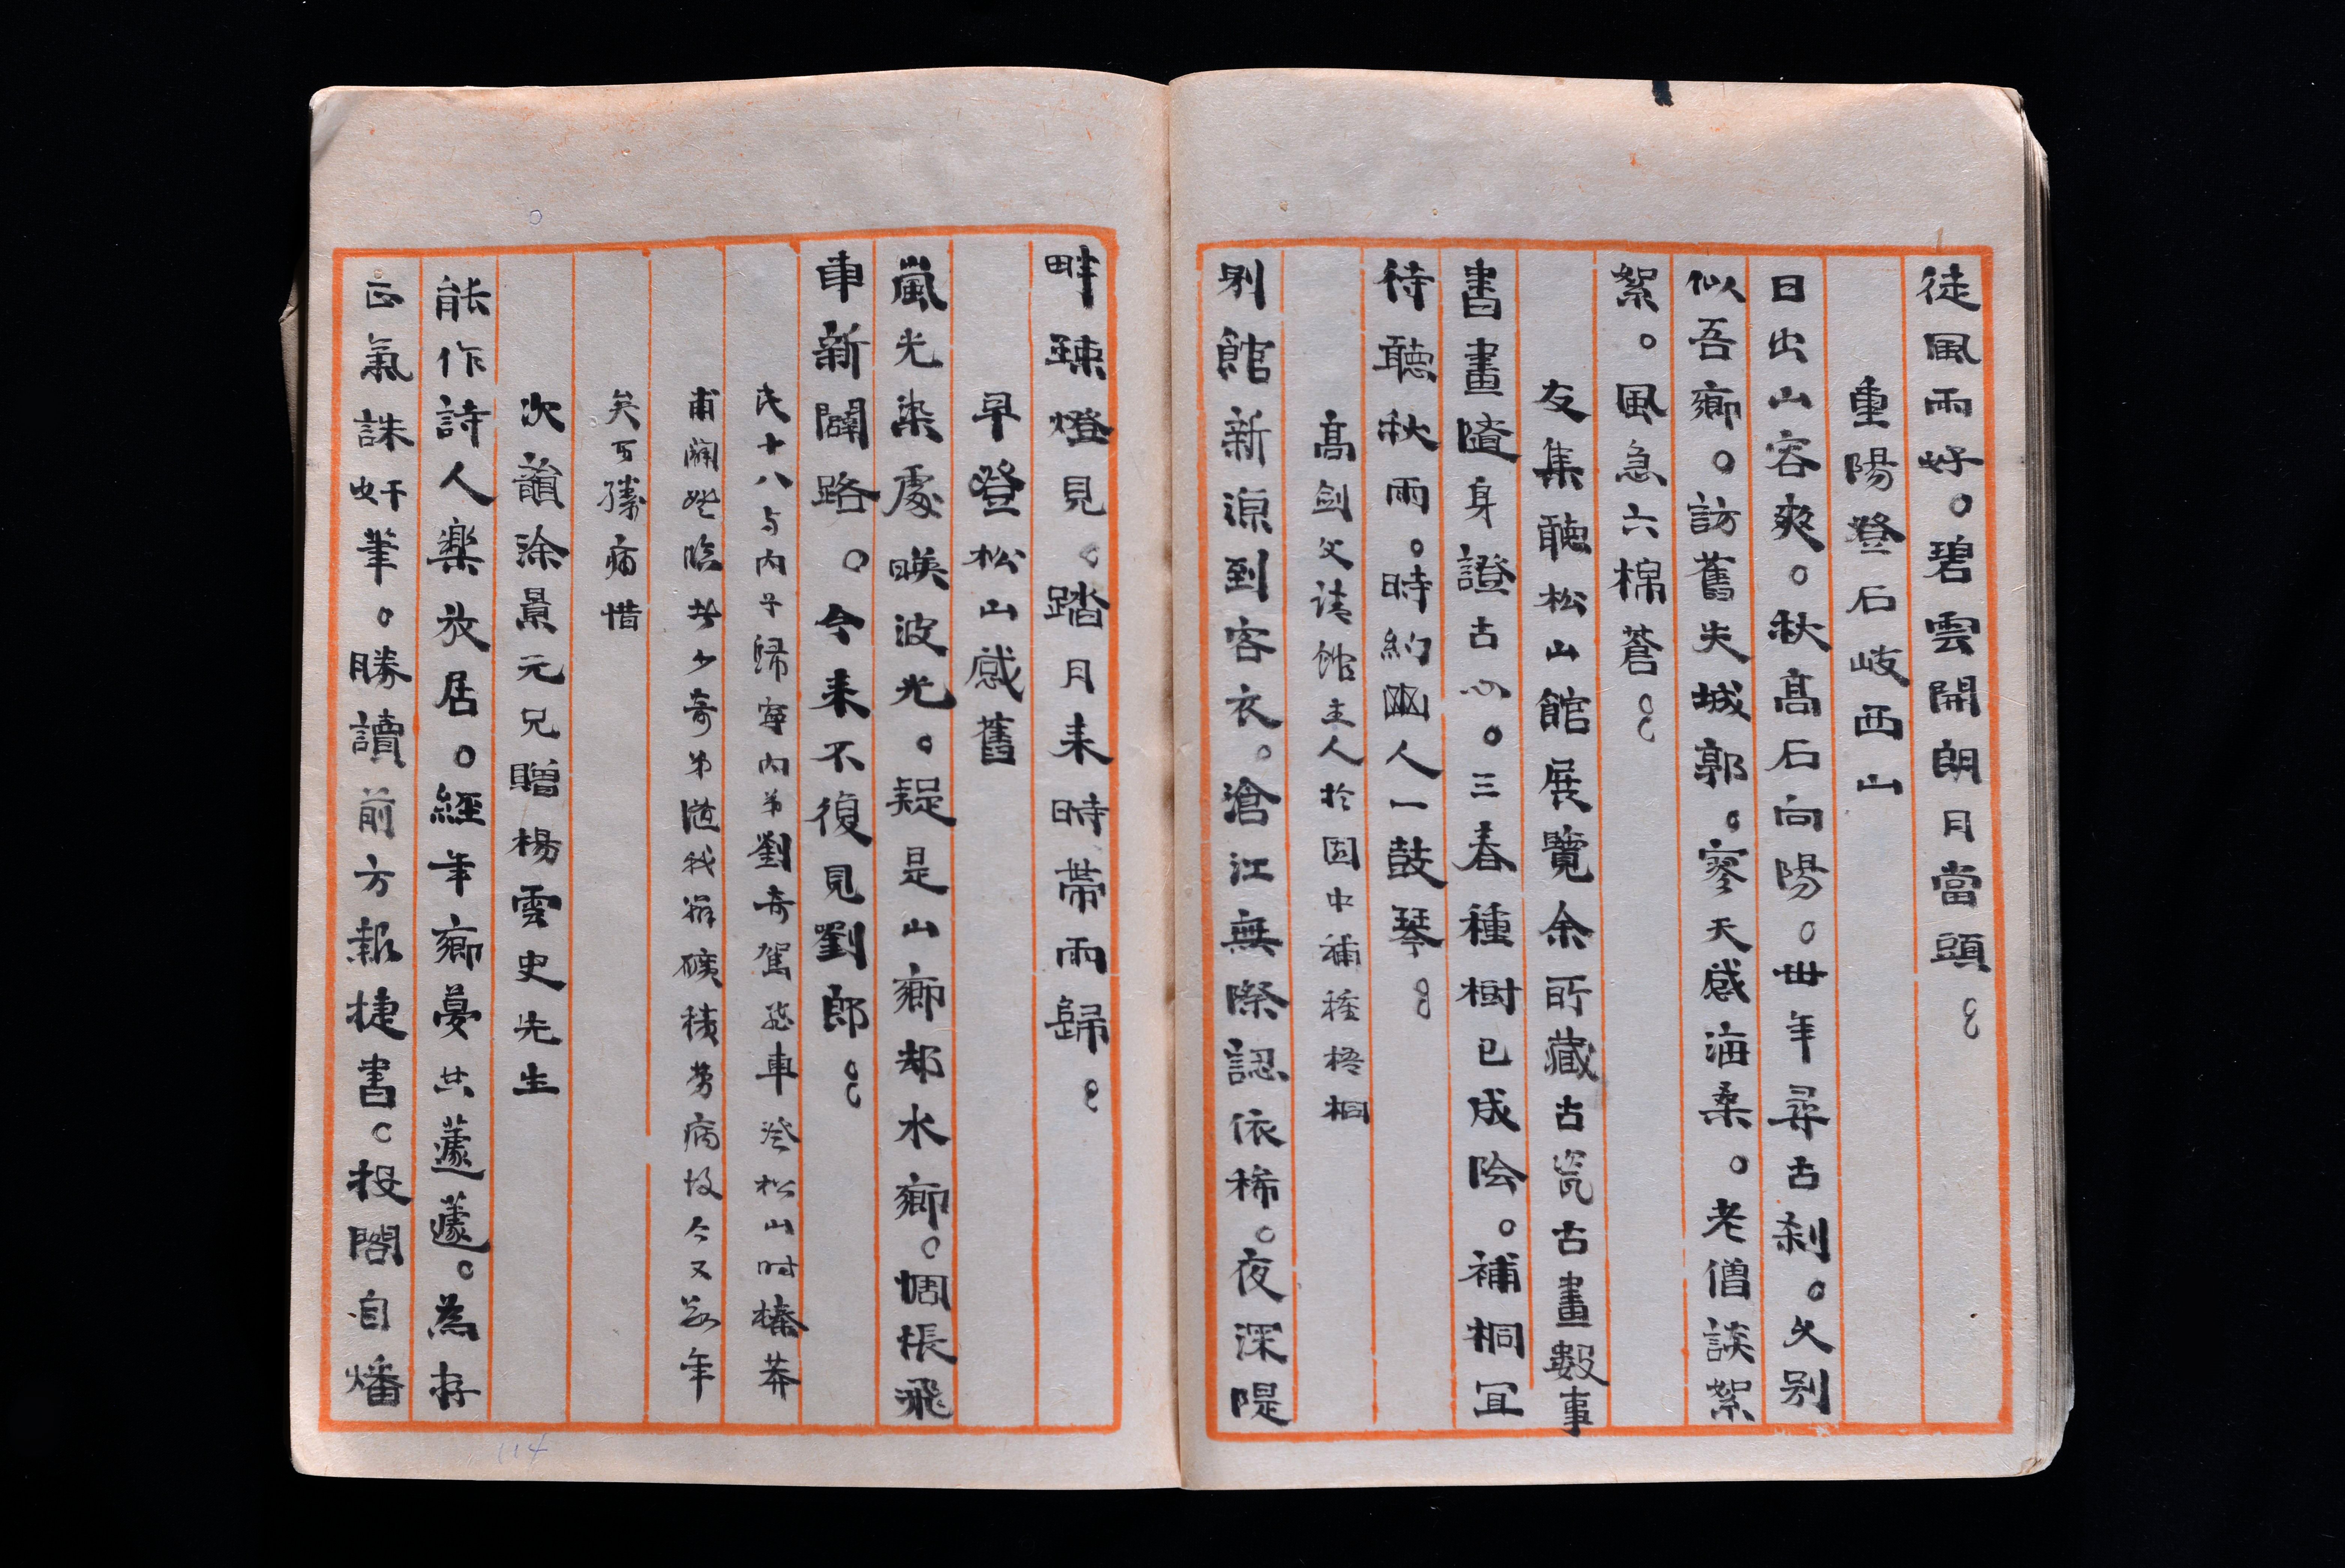 徒風雨好。碧雲開朗月當頭。
重陽登石岐西山
日出山容爽。秋高石向陽。卅年尋古刹。久別
似吾鄉。訪舊失城郭。寥天感海桑。老僧談絮
絮。風急六棉蒼。
友集聽松山館展覽余所藏古瓷古畫數事
書畫隨身證古心。三春種樹已成陰。補桐宜
待聽秋雨。時約幽人一鼓琴。
高劍父請館主人於園中補種梧桐
別館新涼到客衣。滄江無際認依稀。夜深隄
畔疎燈見。踏月來時帶雨歸。
早登松山感舊
嵐光染處暎波光。疑是山鄉却水鄉。惆悵飛
車新闢路。今來不復見劉郎。
民十八與内子歸寧内弟劉奇駕飛車登松山時榛莽
甫闢 臨者少奇弟 我辦礦積勞病故今又 年
矣可勝痛惜
次韻涂景元兄贈楊雲史先生
能作詩人樂放居。經年鄉夢共蘧蘧。為存
正氣誅奸筆。勝讀前方報捷書。投閣自燔
114